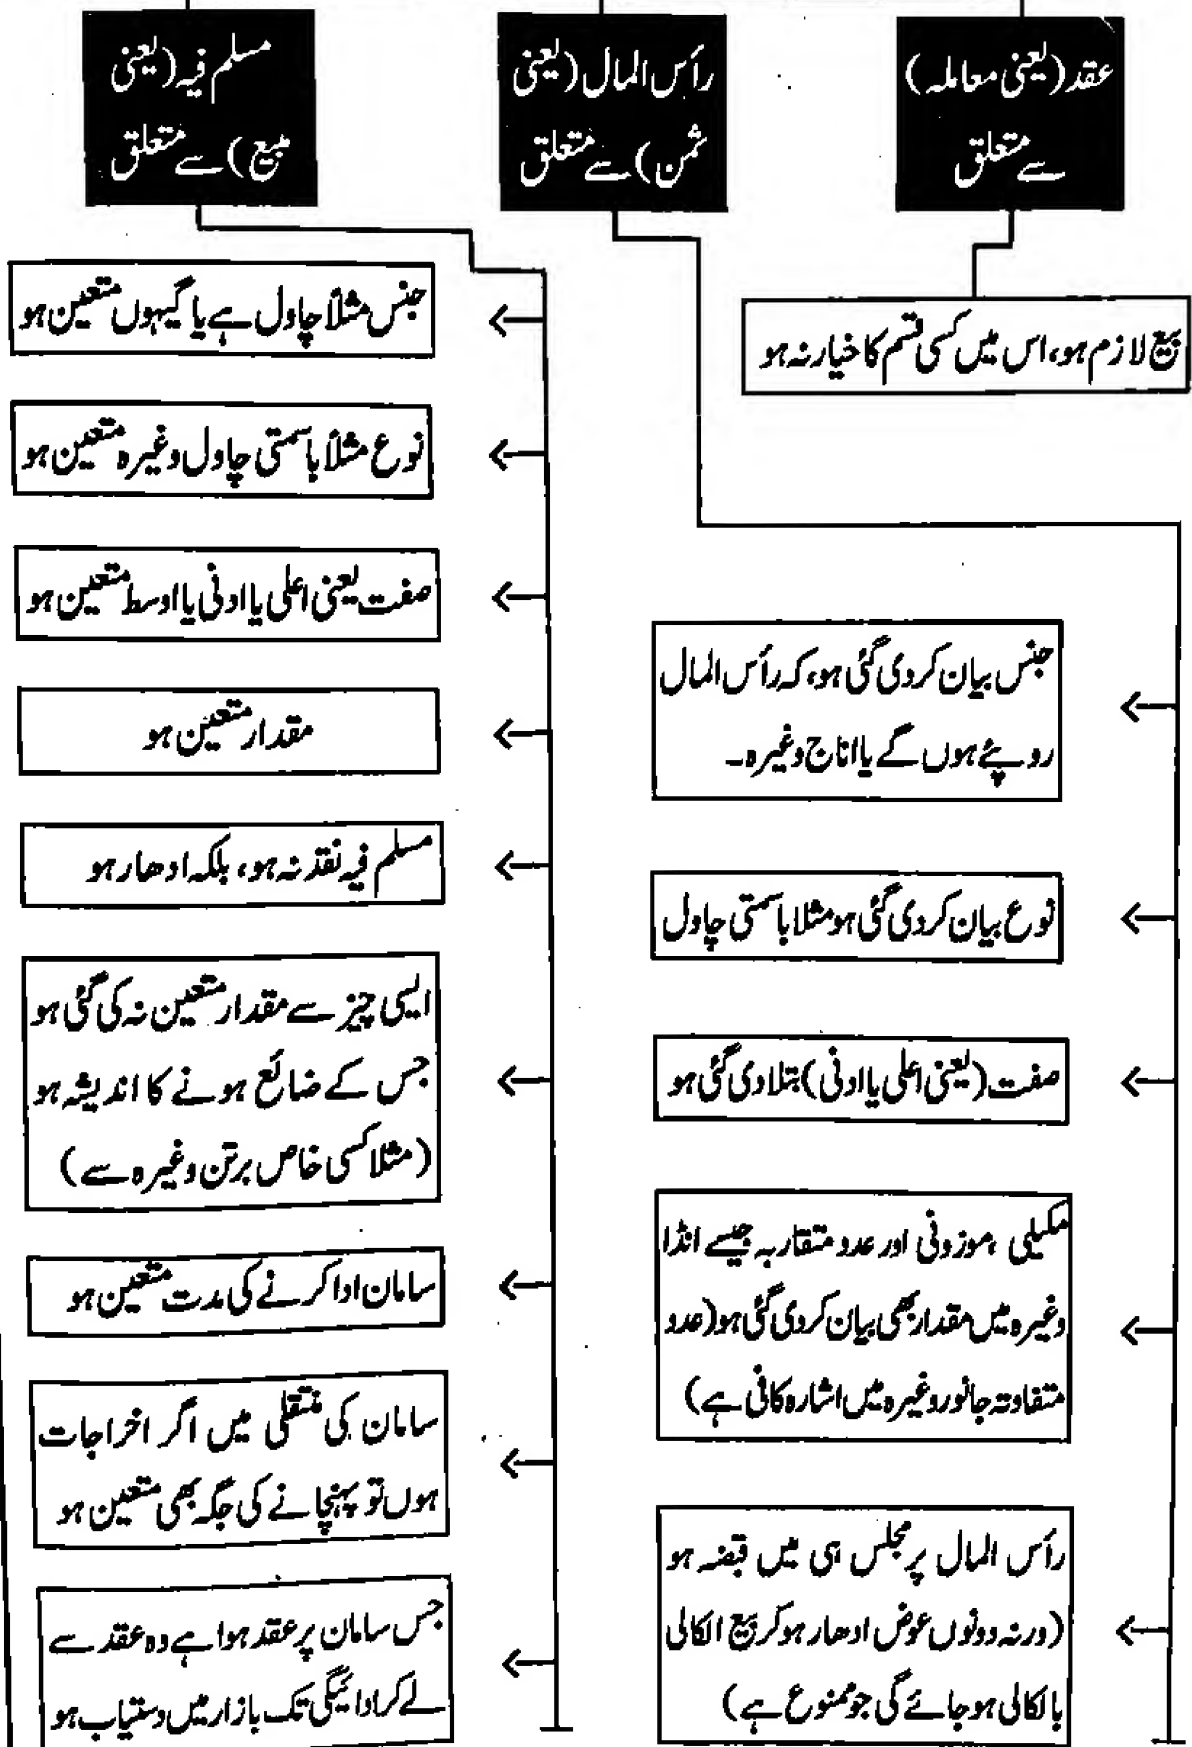 عقد (یعنی معاملہ)
سے متعلق
بیع لازم ہو، اس میں کسی قسم کا خیار نہ ہو
رأس المال (یعنی
ثمن) سے متعلق
جنس بیان کردی گئی ہو، کہ رأس المال
روپئے ہوں گے یا اناج وغیرہ۔
نوع بیان کردی گئی ہو مثلا باسمتی چاول
صفت (یعنی اعلی یا ادنی) بتلا دی گئی ہو
مکیلی، موزونی اور عدد متقاربہ جیسے انڈا
وغیرہ میں مقدار بھی بیان کردی گئی ہو (عدد
متفاوتہ جانور وغیرہ میں اشارہ کافی ہے)
رأس المال پر مجلس ہی میں قبضہ ہو
(ورنہ دونوں عوض ادھار ہوکر بیع الکالی
بالکالی ہوجائے گی جو ممنوع ہے)
مسلم فیہ (یعنی
مبیع) سے متعلق
جنس مثلاً چاول ہے یا گیہوں متعین ہو
نوع مثلاً باسمتی چاول وغیرہ متعین ہو
صفت یعنی اعلی یا ادنی یا اوسط متعین ہو
مقدار متعین ہو
مسلم فیہ نقد نہ ہو، بلکہ ادھار ہو
ایسی چیز سے مقدار متعین نہ کی گئی ہو
جس کے ضائع ہونے کا اندیشہ ہو
(مثلا کسی خاص برتن وغیرہ سے)
سامان ادا کرنے کی مدت متعین ہو
سامان کی منتقلی میں اگر اخراجات
ہوں تو پہنچانے کی جگہ بھی متعین ہو
جس سامان پر عقد ہوا ہے وہ عقد سے
لے کر ادائیگی تک بازار میں دستیاب ہو